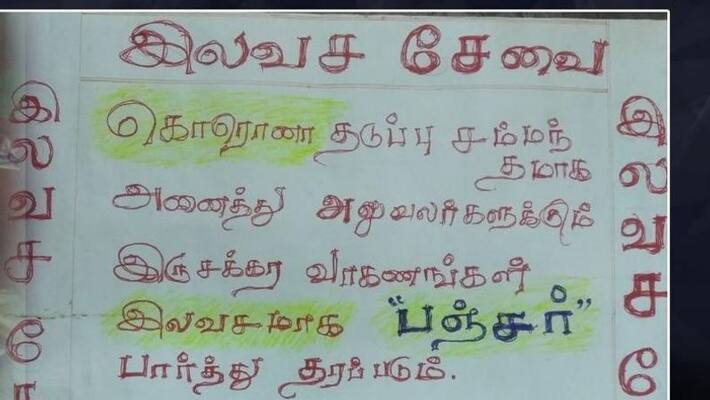 இலவச சேவை
கொரொனா தடுப்பு சம்மந்
தமாக
அனைத்து அலுவலர்களுக்கும்
இருசக்கர வாகணங்கள்
இலவசமாக "பஞ்சர்"
பார்த்து தரப்படும்.
இலவச சே
இலவச சே